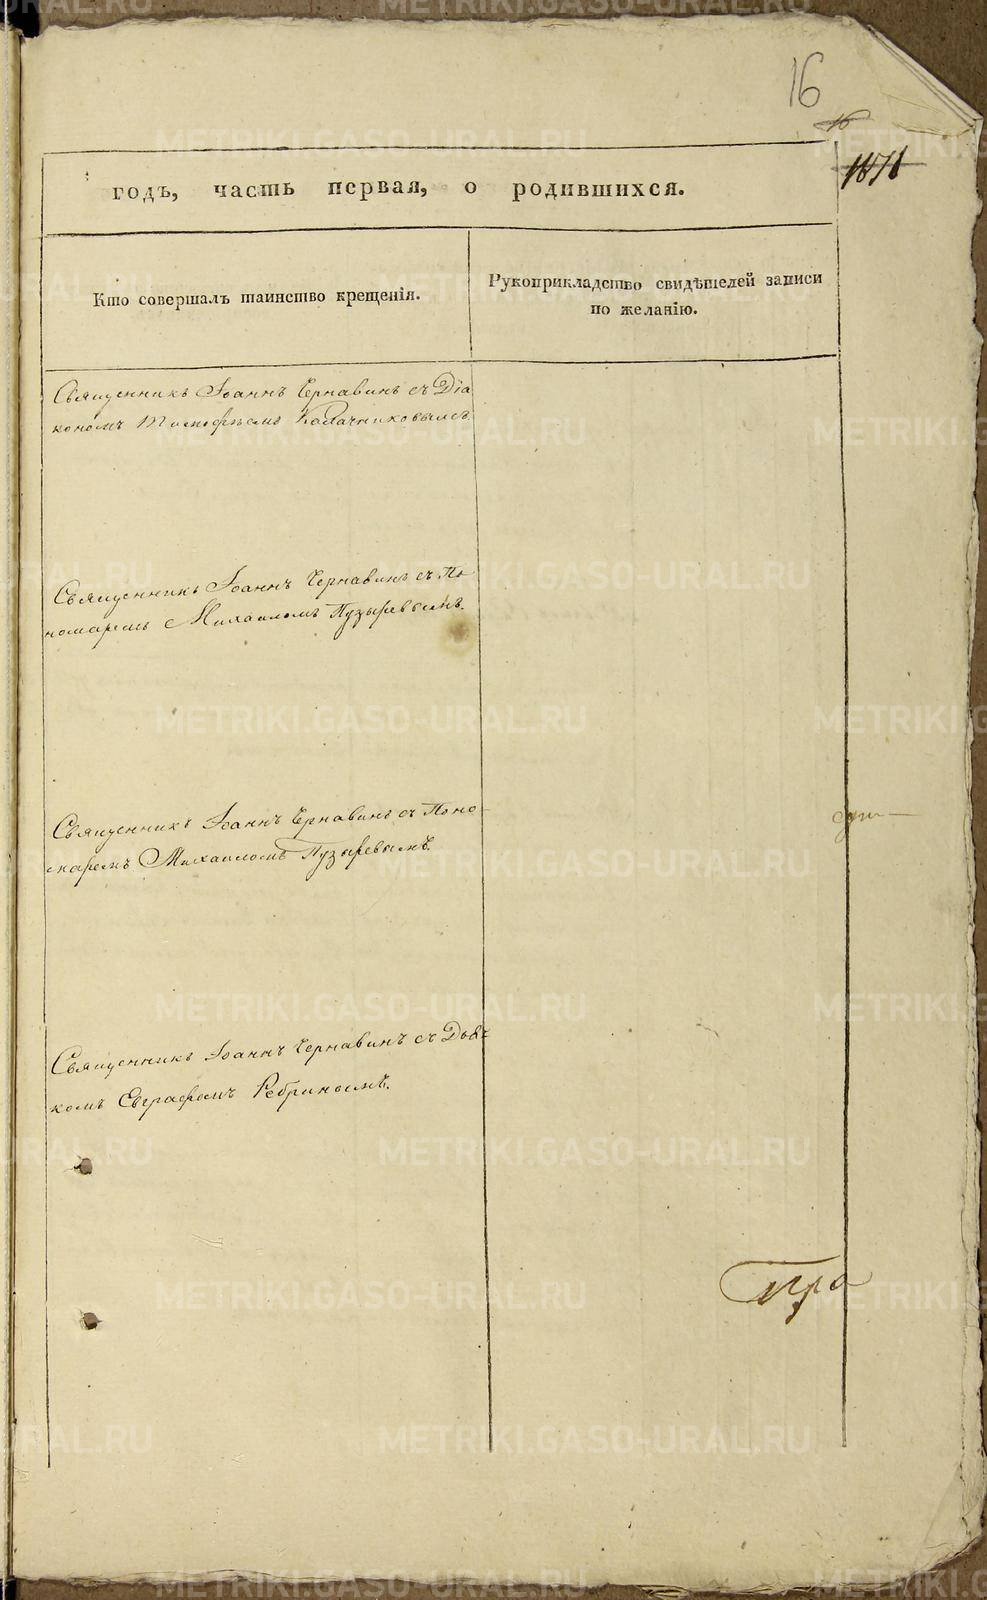 16
16
1871
годъ, часть первая, о родившихся.
Кто совершалъ таинство крещенія.
Рукоприкладство свидѣтелей записи
по желанію.
Священникъ Іоаннъ Чернавинъ съ Діа
кономъ Тимофѣемъ Калачниковымъ.
Священникъ Іоаннъ Чернавинъ съ По
номаремъ Михаиломъ Пузыревымъ.
Священникъ Іоаннъ Чернавинъ съ Поно-
маремъ Михаиломъ Пузыревымъ.
Священникъ Іоаннъ Чернавинъ съ Дьяч
комъ Евграфомъ Ребринымъ.
METRIKI.GASO-URAL.RU